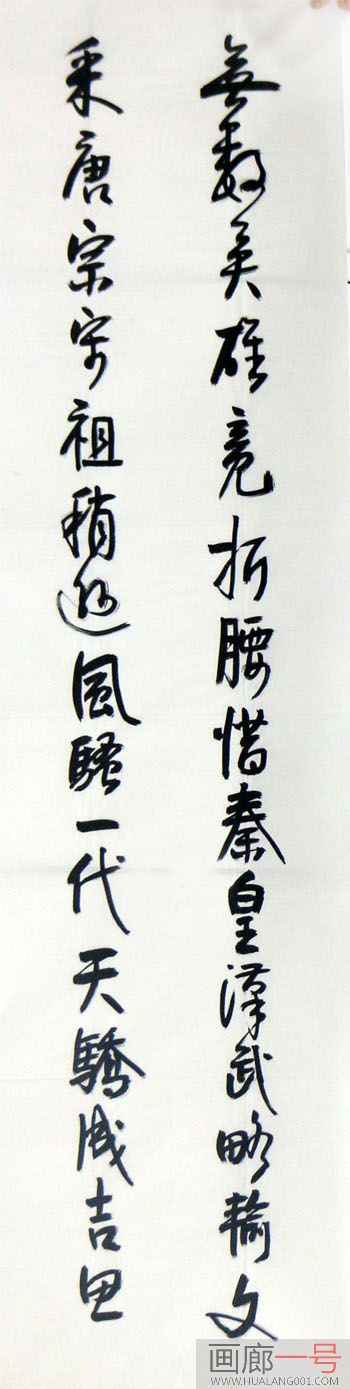 無数英雄竞折腰惜秦皇漢武略輸文
采唐宗宋祖稍逊風騷一代天驕成吉思
画廊一号
WWW.HUALANG001.COM